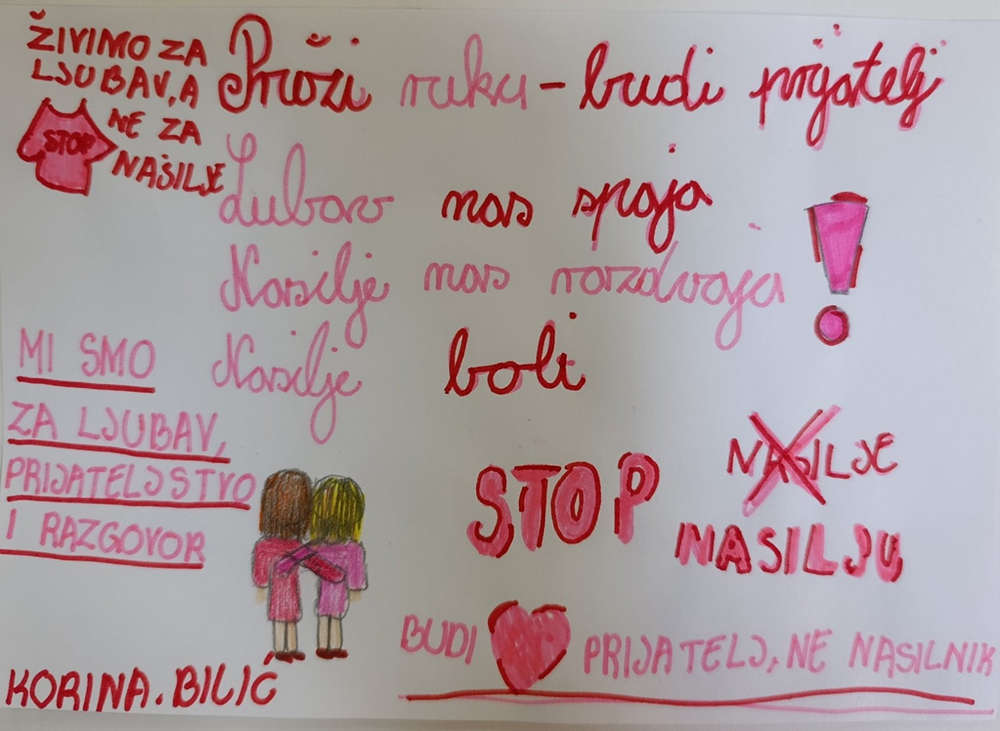 ŽIVIMO ZA
LJUBAV, A
NE ZA
NASILJE
STOP
Pruži ruku - budi prijatelj
Lubav nas spaja
Nasilje nas razdvaja
Nasilje boli
!
MI SMO
ZA LJUBAV,
PRIJATELJSTVO
I RAZGOVOR
STOP
NASILJE
NASILJU
BUDI PRIJATELJ, NE NASILNIK
KORINA. BILIĆ